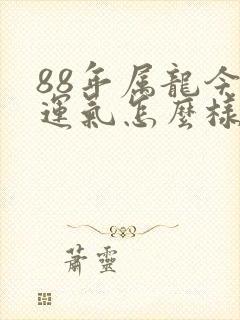 88年属龍今
運氣怎麽樣
蕭靈